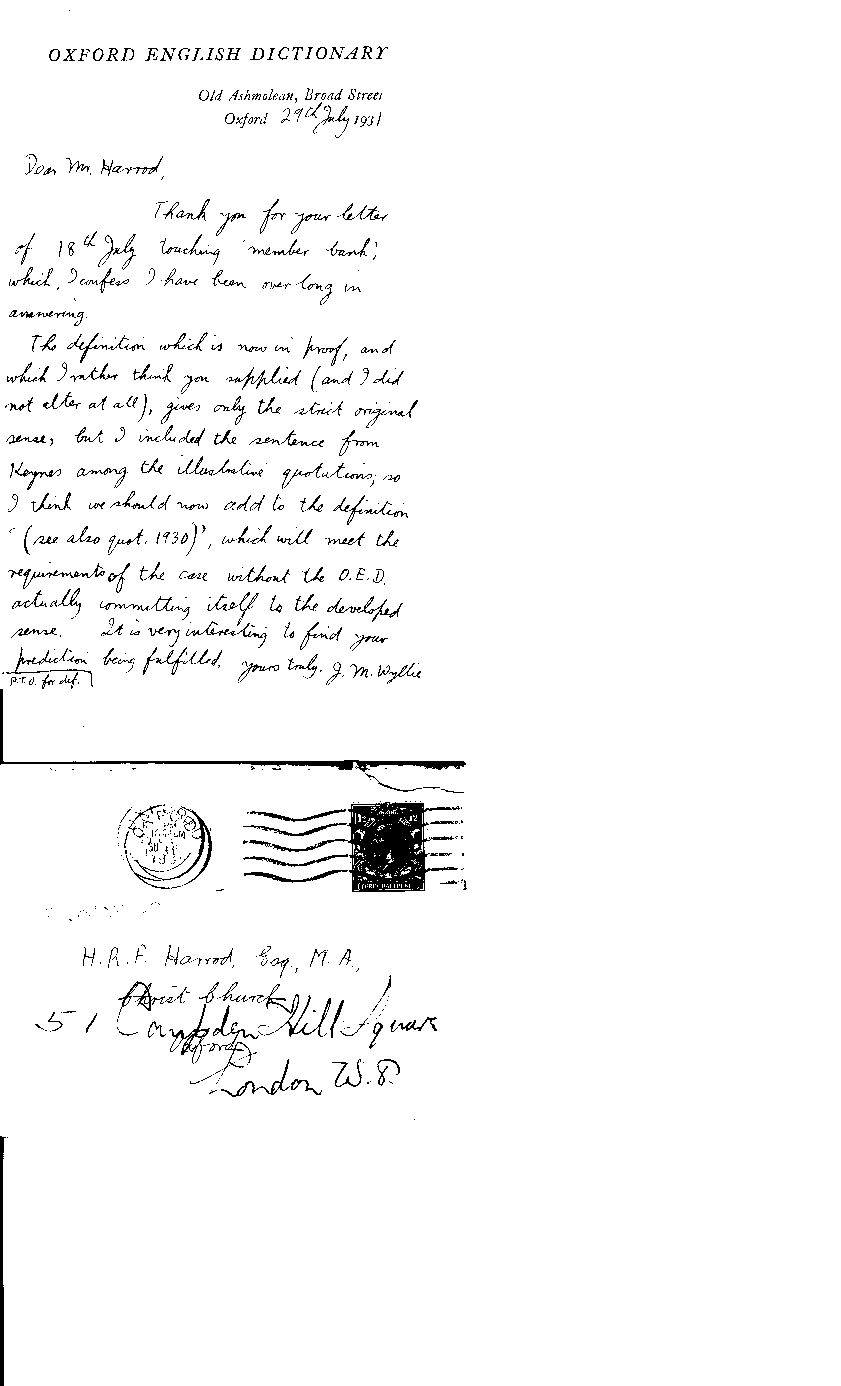 OXFORD ENGLISH DICTIONARY
Old Ashmolean, Broad Street
Oxford 29th July 1931
Dear Mr. Harrod,
Thank you for your letter
of 18th July touching 'member bank',
which, I confess I have been over long in
answering.
The definition which is now in proof, and
which I rather think you supplied (and I did
not alter at all), gives only the strict original
sense; but I included the sentence from
Keynes among the illustrative quotations; so
I think we should now add to the definition
"(see also quot. 1930)", which will meet the
requirements of the case without the O.E.D.
actually committing itself to the developed
sense. It is very interesting to find your
prediction being fulfilled. yours truly. J. M. Wyllie
P.T.O. for def.
OXFORD
H.R.F. Harrod, Esq., M.A.,
Christ Church
51 Campden Hill Square
Oxford
London W.8.